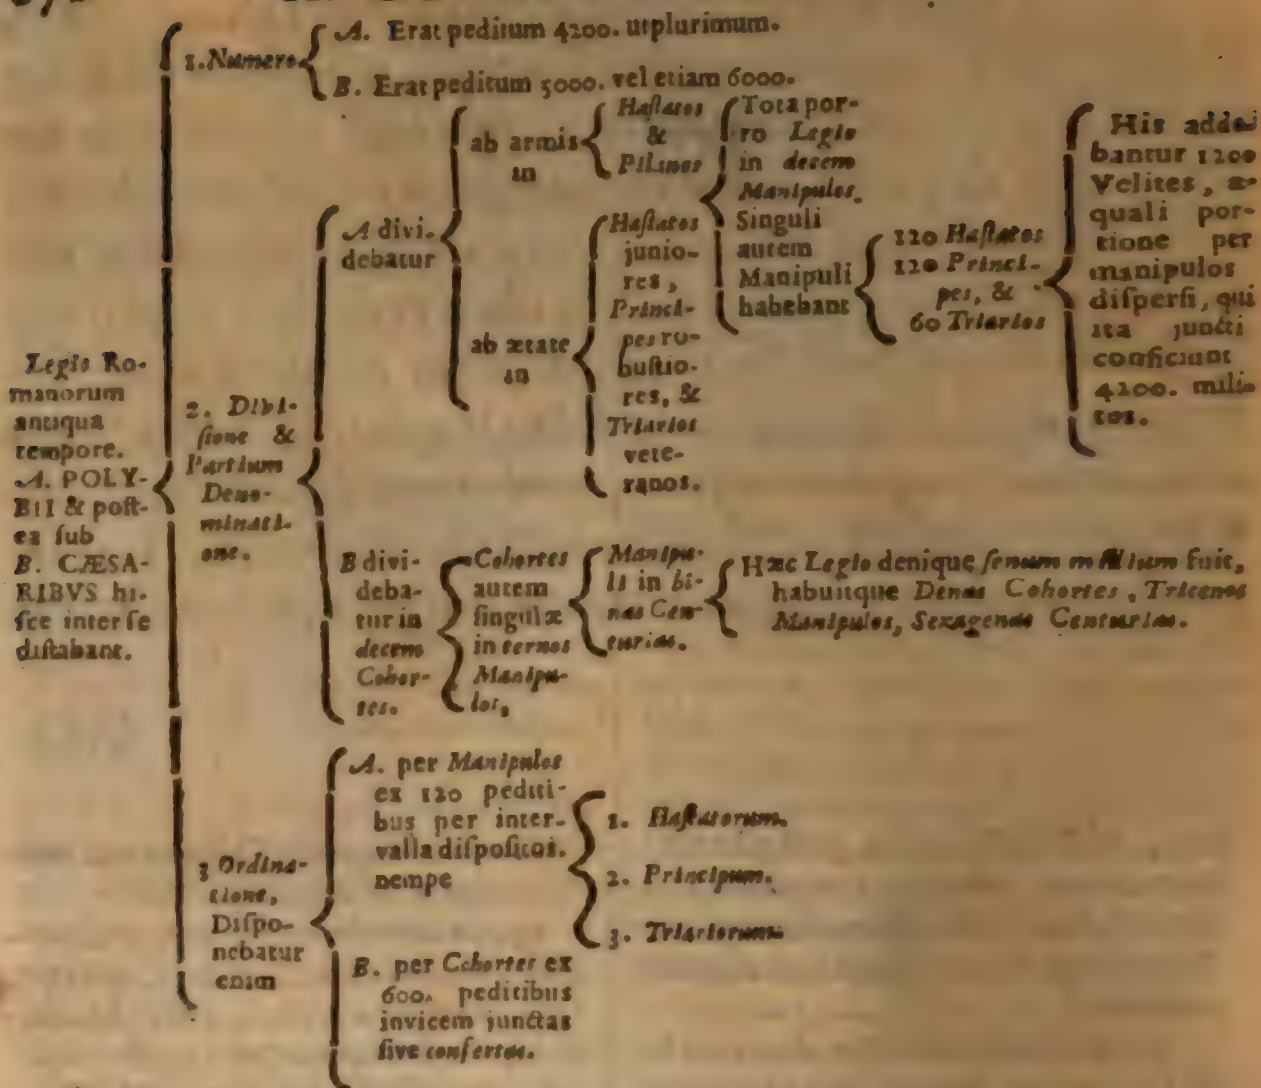 Legio Ro-
manorum
antiqua
tempore.
A. POLY-
BII & poſt-
ea ſub
B. CÆSA-
RIBVS hi-
ſce inter ſe
diſtabant.
1. Numero.
A. Erat peditum 4200. utplurimum.
B. Erat peditum 5000. vel etiam 6000.
2. Divi-
ſione &
Partium
Deno-
minati-
one.
A divi-
debatur
ab armis
in
Haſtatos
&
Pilanos
ab ætate
in
Haſtatos
junio-
res,
Princi-
pes ro-
buſtio-
res, &
Triarios
vete-
ranos.
Tota por-
ro Legio
in decem
Manipulos.
Singuli
autem
Manipuli
habebant
120 Haſtatos
120 Princi-
pes, &
60 Triarios
His adde-
bantur 1200
Velites, æ-
quali por-
tione per
manipulos
diſperſi, qui
ita juncti
conficiunt
4200. mili-
tes.
B divi-
deba-
tur in
decem
Cohor-
tes.
Cohortes
autem
ſingulæ
in ternos
Manipu-
los,
Manipu-
li in bi-
nas Cen-
turias.
Hæc Legio denique ſenum millium fuit,
habuitque Denas Cohortes, Tricenos
Manipulos, Sexagenas Centurias.
3 Ordina-
tione,
Diſpo-
nebatur
enim
A. per Manipulos
ex 120 pediti-
bus per inter-
valla diſpoſitos.
nempe
1. Haſtatorum.
2. Principum.
3. Triariorum.
B. per Cohortes ex
600. peditibus
invicem junctas
ſive confertas.